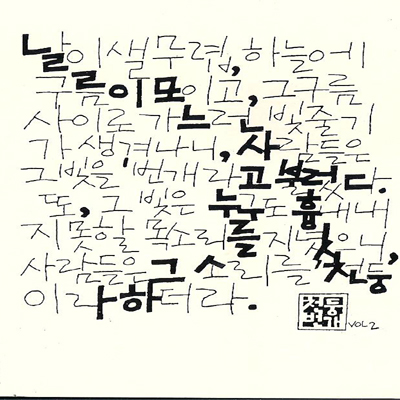 날이 샐 무렵, 하늘에
구름이 모이고, 그 구름
사이로 가느란 빛줄기
가 생겨나니, 사람들은
그 빛을 번개라고 불렀다.
또, 그 빛은 누구도 흉내내
지 못할 목소리를 지녔으니
사람들은 그 소리를, '천둥'
이라 하더라.
천둥번개 VOL2